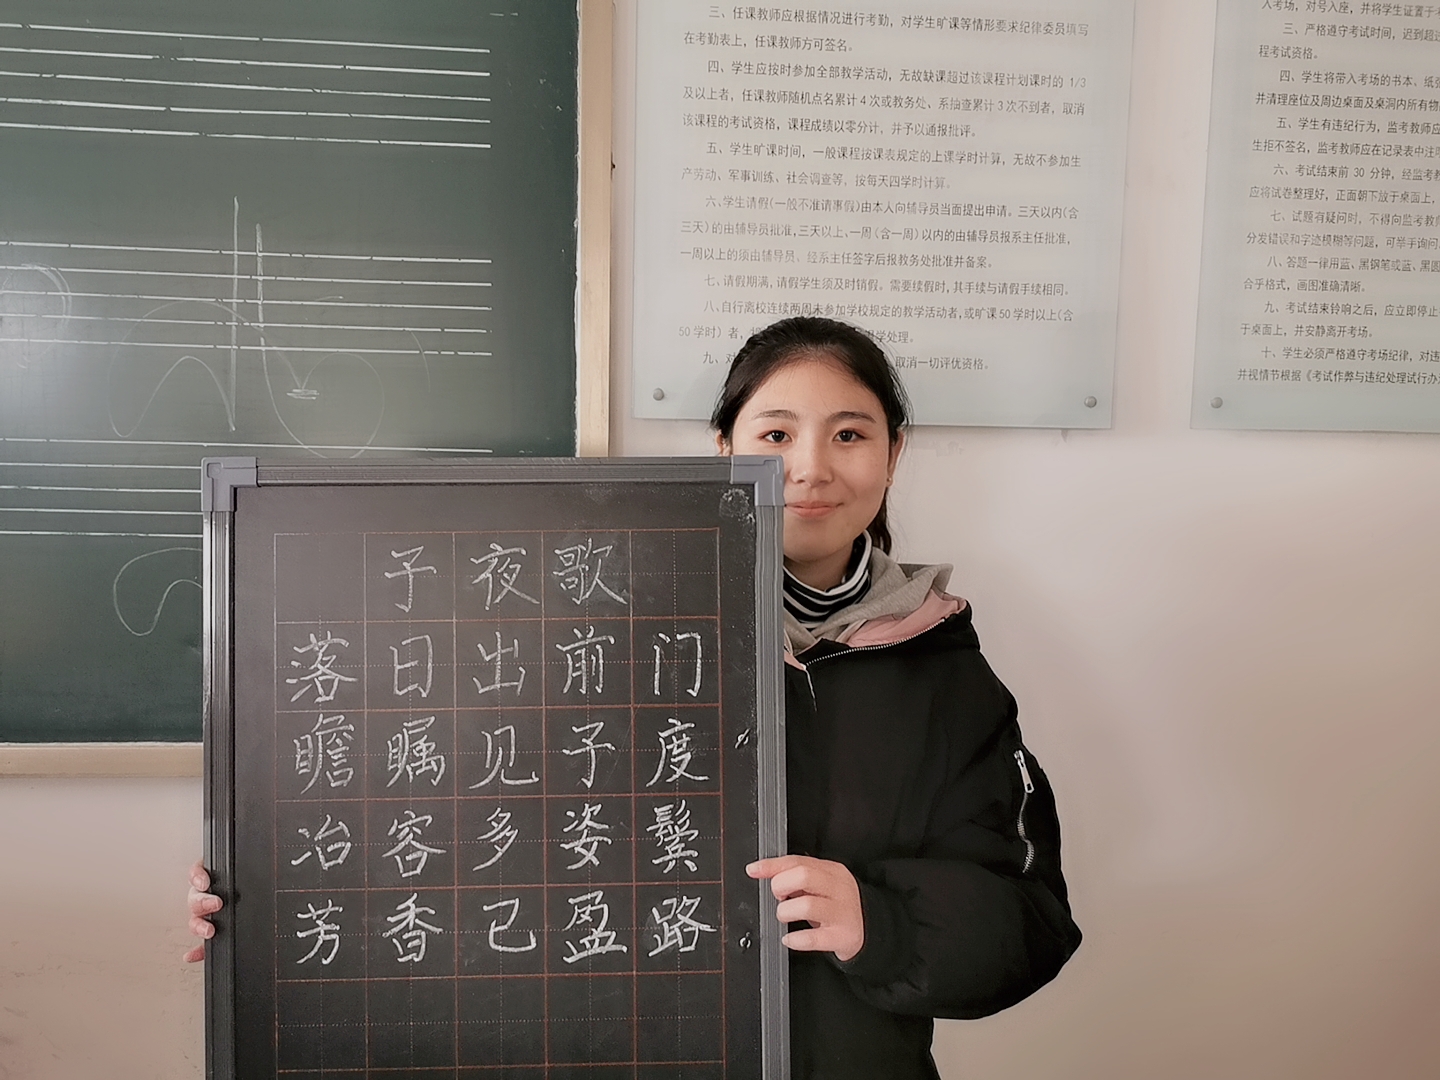 三、任课教师应根据情况进行考勤，对学生旷课等情形要求纪律委员填写
在考勤表上，任课教师方可签名。
四、学生应按时参加全部教学活动，无故缺课超过该课程计划课时的 1/3
及以上者，任课教师随机点名累计 4 次或教务处、系抽查累计 3 次不到者，取消
该课程的考试资格，课程成绩以零分计，并予以通报批评。
五、学生旷课时间，一般课程按课表规定的上课学时计算，无故不参加生
产劳动、军事训练、社会调查等，按每天四学时计算。
六、学生请假(一般不准请事假)由本人向辅导员当面提出申请。三天以内(含
三天)的由辅导员批准,三天以上、一周(含一周)以内的由辅导员报系主任批准,
一周以上的须由辅导员、经系主任签字后报教务处批准并备案。
七、请假期满，请假学生须及时销假。需要续假时,其手续与请假手续相同。
八、自行离校连续两周未参加学校规定的教学活动者,或旷课50 学时以上(含
50 学时) 者，学处理。
九、对取消一切评优资格。
入考场，对号入座，并将学生证置于
三、严格遵守考试时间，迟到超
程考试资格。
四、学生将带入考场的书本、纸
并清理座位及周边桌面及桌洞内所有物
五、学生有违纪行为，监考教师应
生拒不签名，监考教师应在记录表中注
六、考试结束前 30 分钟，经监考
应将试卷整理好，正面朝下放于桌面上，
七、试题有疑问时，不得向监考教
分发错误和字迹模糊等问题，可举手询问
八、答题一律用蓝、黑钢笔或蓝、黑
合乎格式，画图准确清晰。
九、考试结束铃响之后，应立即停止
于桌面上，并安静离开考场。
十、学生必须严格遵守考场纪律，对违
并视情节根据《考试作弊与违纪处理试行办
子夜歌
落日出前门
瞻瞩见子度
冶容多姿鬓
芳香已盈路